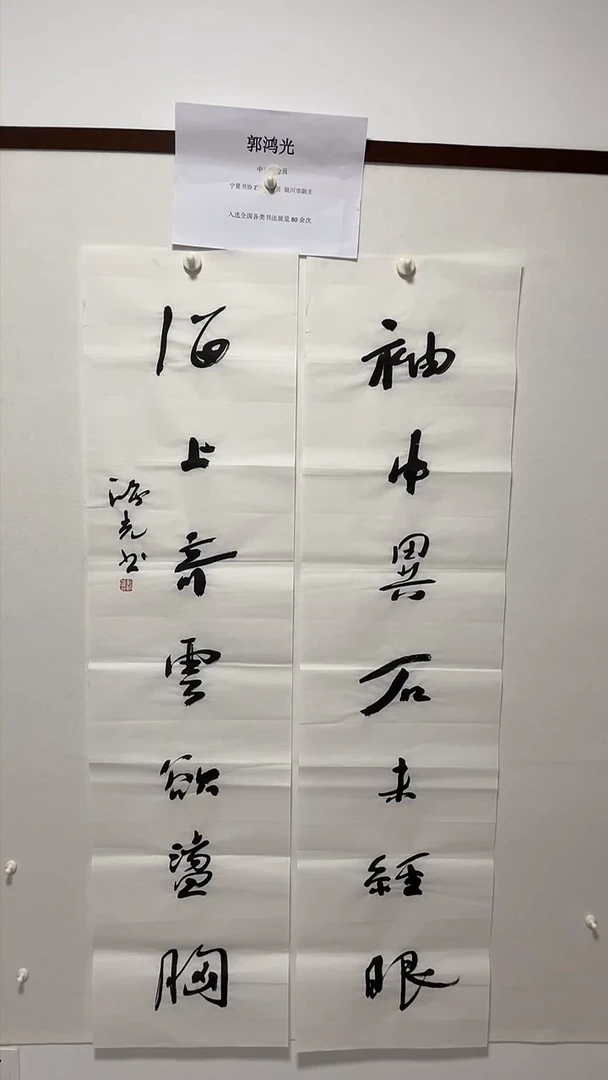 郭鸿光
中 员
宁夏书协 银川市副主
入选全国各类书法展览 80 余次
袖中異石未經眼
海上奇雲欲盪胸
鴻光书